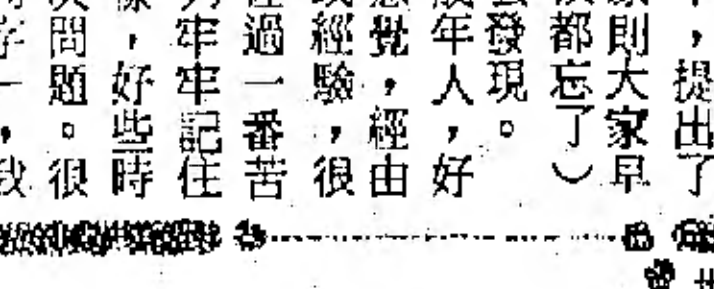 ，提出了
則大家早
都忘了）
發現。
年人，好
覺，經由
經驗，很
過一番苦
牢牢記住
，好些時
問題。很